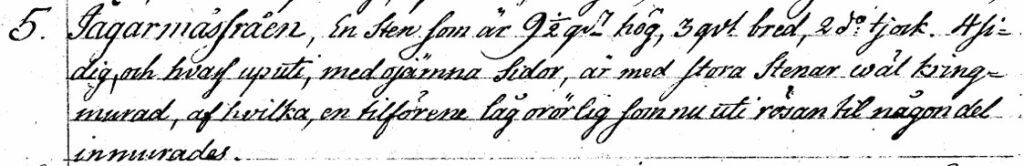 5. Jägarmåssråen, En Sten som är 9½ qvr hög, 3 qvt bred, 2 do tjock. 4 si-
dig, och hvass uputi, med ojämna Sidor, är med stora Stenar wäl kring-
murad, af hvilka, en tilförene låg orörlig som nu uti rösan til någon del
inmurades.